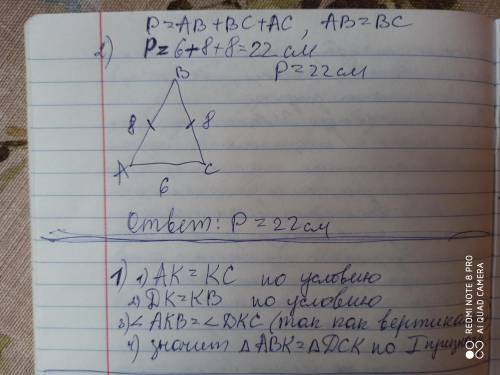 P=AB+BC+AC, AB=BC
2) P=6+8+8=22 см
P=22см
B
8 8
A C
6
Ответ: P=22см
1) 1) AK=KC по условию
2) DK=KB по условию
3) ∠AKB=∠DKC (так как вертика
4) значит △ABK=△DCK по I призна
REDMI NOTE 8 PRO
AI QUAD CAMERA